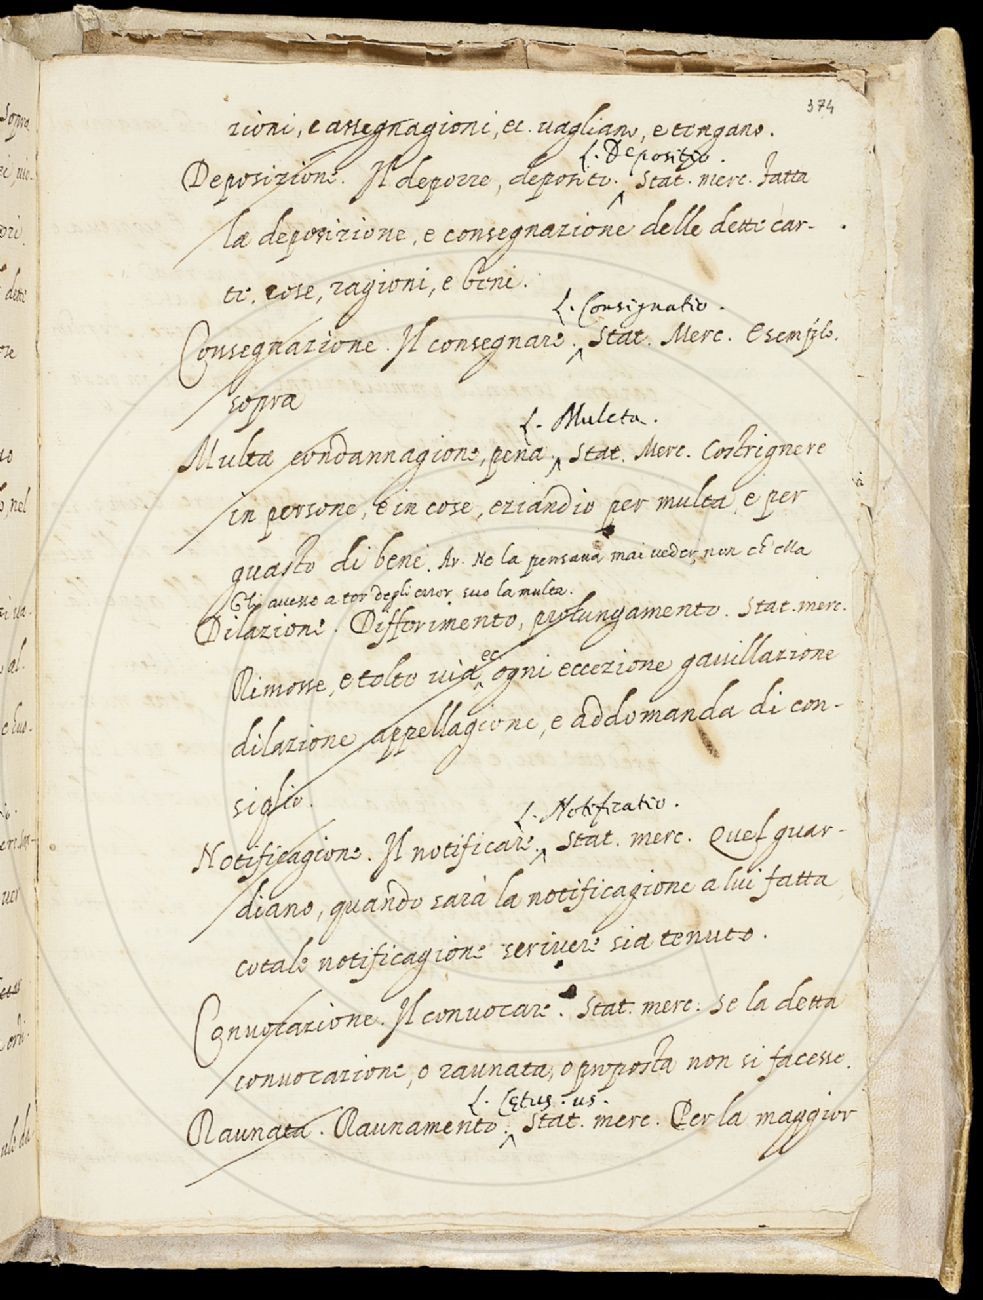 374
zioni, e assegnagioni, ec. vagliano, e tengano.
L. Depositio.
Deposizione. Il deporre, deposito. Stat. merc. fatta
la deposizione, e consegnazione delle dette car-
te, cose, ragioni, e beni.
L. Consignatio.
Consegnazione. Il consegnare. Stat. Merc. Esemplo.
sopra
L. Mulcta.
Multa condannagione, pena. Stat. Merc. Costrignere
in persone, e in cose, eziandio per multa, e per
guasto di beni. Ar. Ne la pensava mai veder, non ch'ella
Gli avesse a tor degli error suo la multa.
Dilazione. Differimento, prolungamento. Stat. merc.
Rimosse, e tolto via ec ogni eccezione gavillazione
dilazione appellagione, e addomanda di con-
siglio.
L. Notificatio.
Notificagione. Il notificare. Stat. merc. Quel guar-
diano, quando sarà la notificagione a lui fatta
cotale notificagione scrivere sia tenuto.
Convocazione. Il convocare. Stat. merc. Se la detta
convocazione, o raunata, o proposta non si facesse.
L. Cętus. us.
Raunata. Raunamento. Stat. merc. Per la maggior